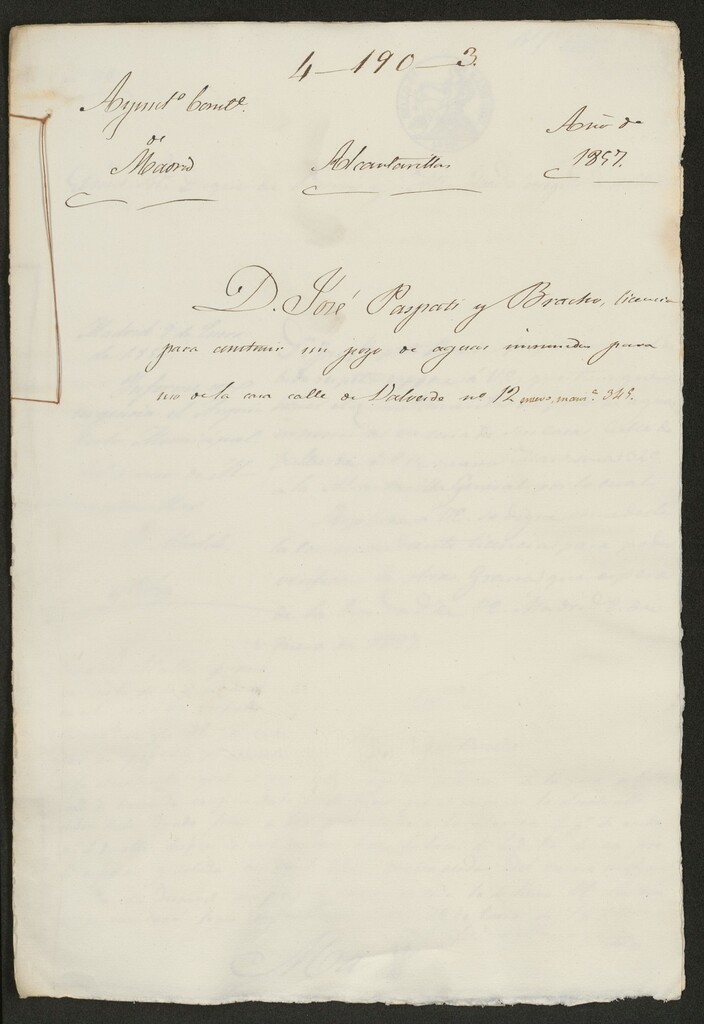 4-190-3.
Ayunt.º Const.l
de
Madrid
Alcantarillas
Año de
1857.
D. José Paspati y Bracho, licencia
para construir un pozo de aguas inmundas para
uso de la casa calle de Valverde nº 12 nuevo, manz.ª 345.